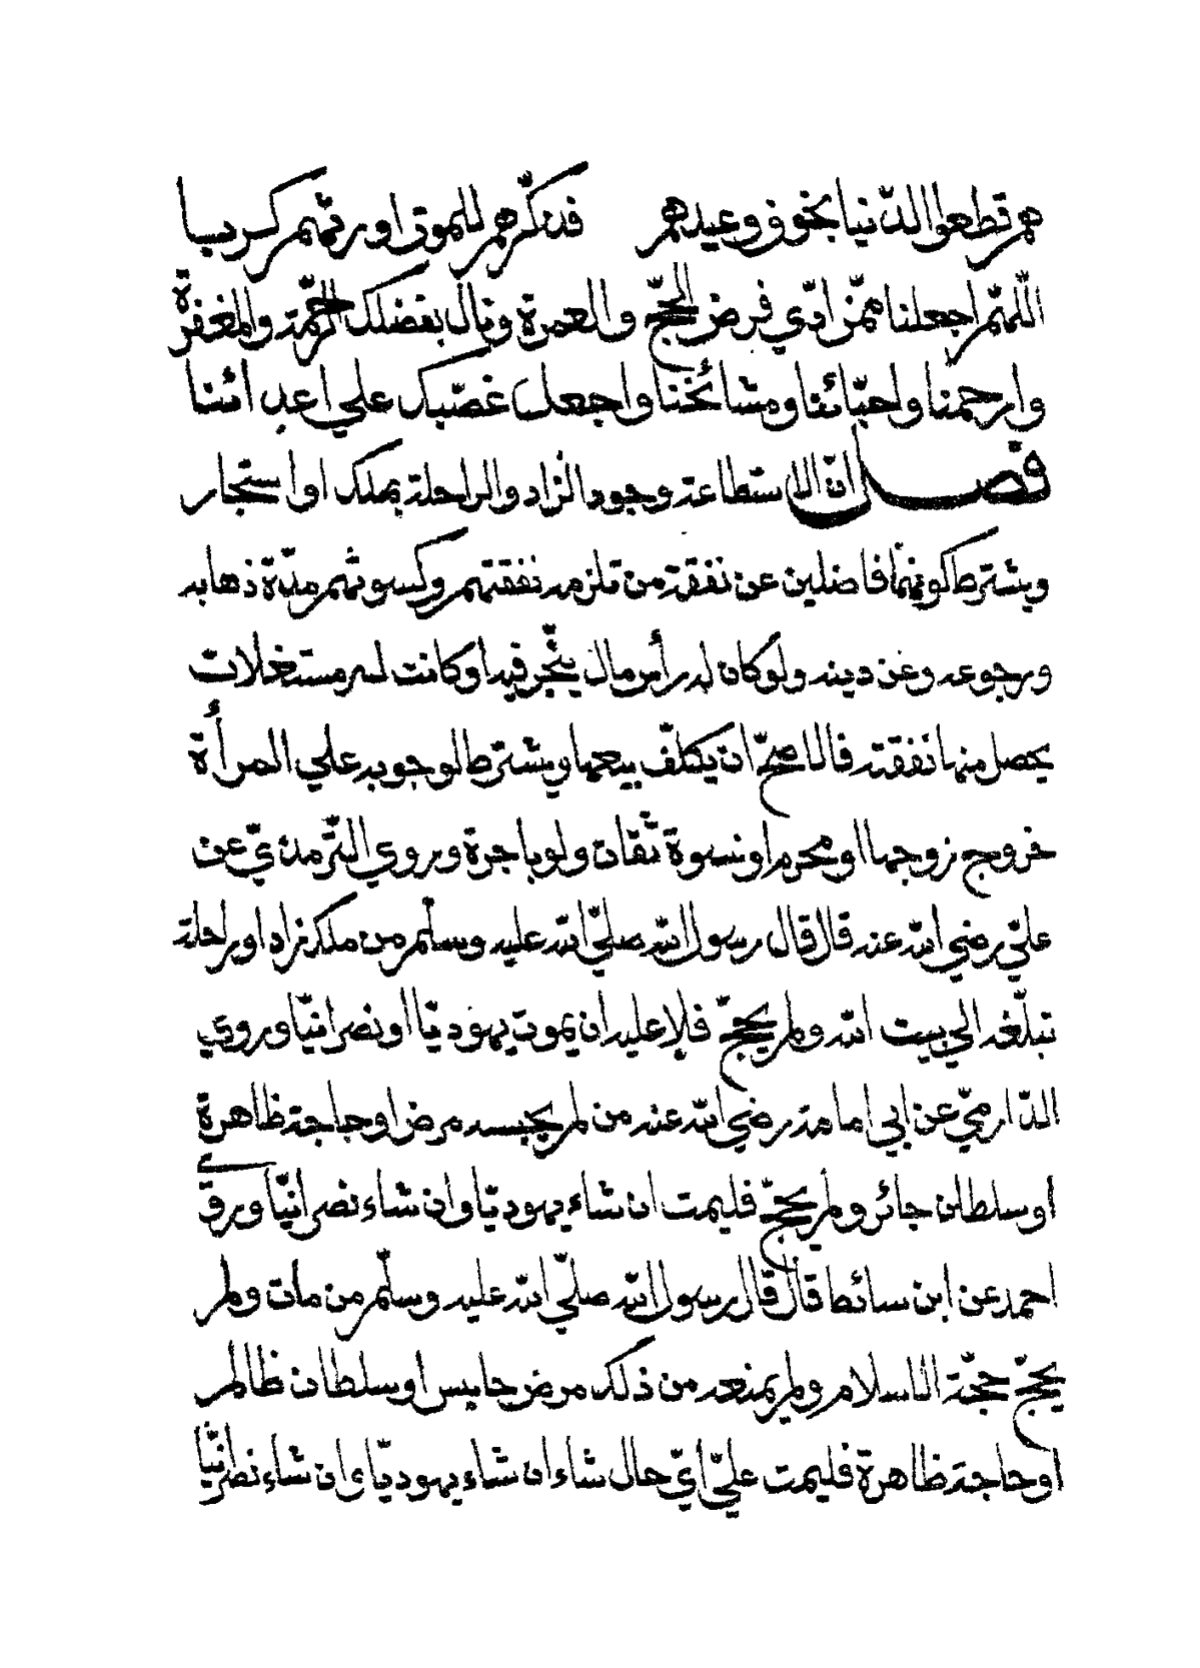 هم قطعوا الدّنيا بخوف وعيدهم فذكّرهم للموتى اورثهم كربا
اللّهمّ اجعلنا ممّن ادّي فرض الحجّ والعمرة ونال بفضلك الرّحمة والمغفرة
وارحمنا واحبّائنا ومشائخنا واجعل غضبك علي اعدائنا
فصل انّ الاستطاعة وجود الزاد والراحلة بملك او استجار
ويشترط كونهما فاضلين عن نفقة من تلزمه نفقتهم وكسوتهم مدّة ذهابه
ورجوعه وعن دينه ولو كان له رأس مال يتّجر فيه او كانت له مستغلات
يحصل منها نفقته فالاصحّ ان يكلّف بيعها ويشترط الوجوبه علي المرأة
خروج زوجها او محرم او نسوة ثقات ولو باجرة وروي التّرمذيّ عن
عليّ رضي الله عنه قال قال رسول الله صلّي الله عليه وسلّم من ملك زادا وراحلة
تبلّغه الي بيت الله ولم يحجّ فلا عليه ان يموت يهوديّا او نصرانيّا وروي
الدّارميّ عن ابي امامة رضي الله عنه من لم يحبسه مرض او حاجة ظاهرة
او سلطان جائر ولم يحجّ فليمت ان شاء يهوديّا وان شاء نصرانيّا وروي
احمد عن ابن سائط قال قال رسول الله صلّي الله عليه وسلّم من مات ولم
يحجّ حجّة الاسلام ولم يمنعه من ذلك مرض حابس او سلطان ظالم
او حاجة ظاهرة فليمت عليّ ايّ حال شاء ان شاء يهوديّا وان شاء نصرانيّا